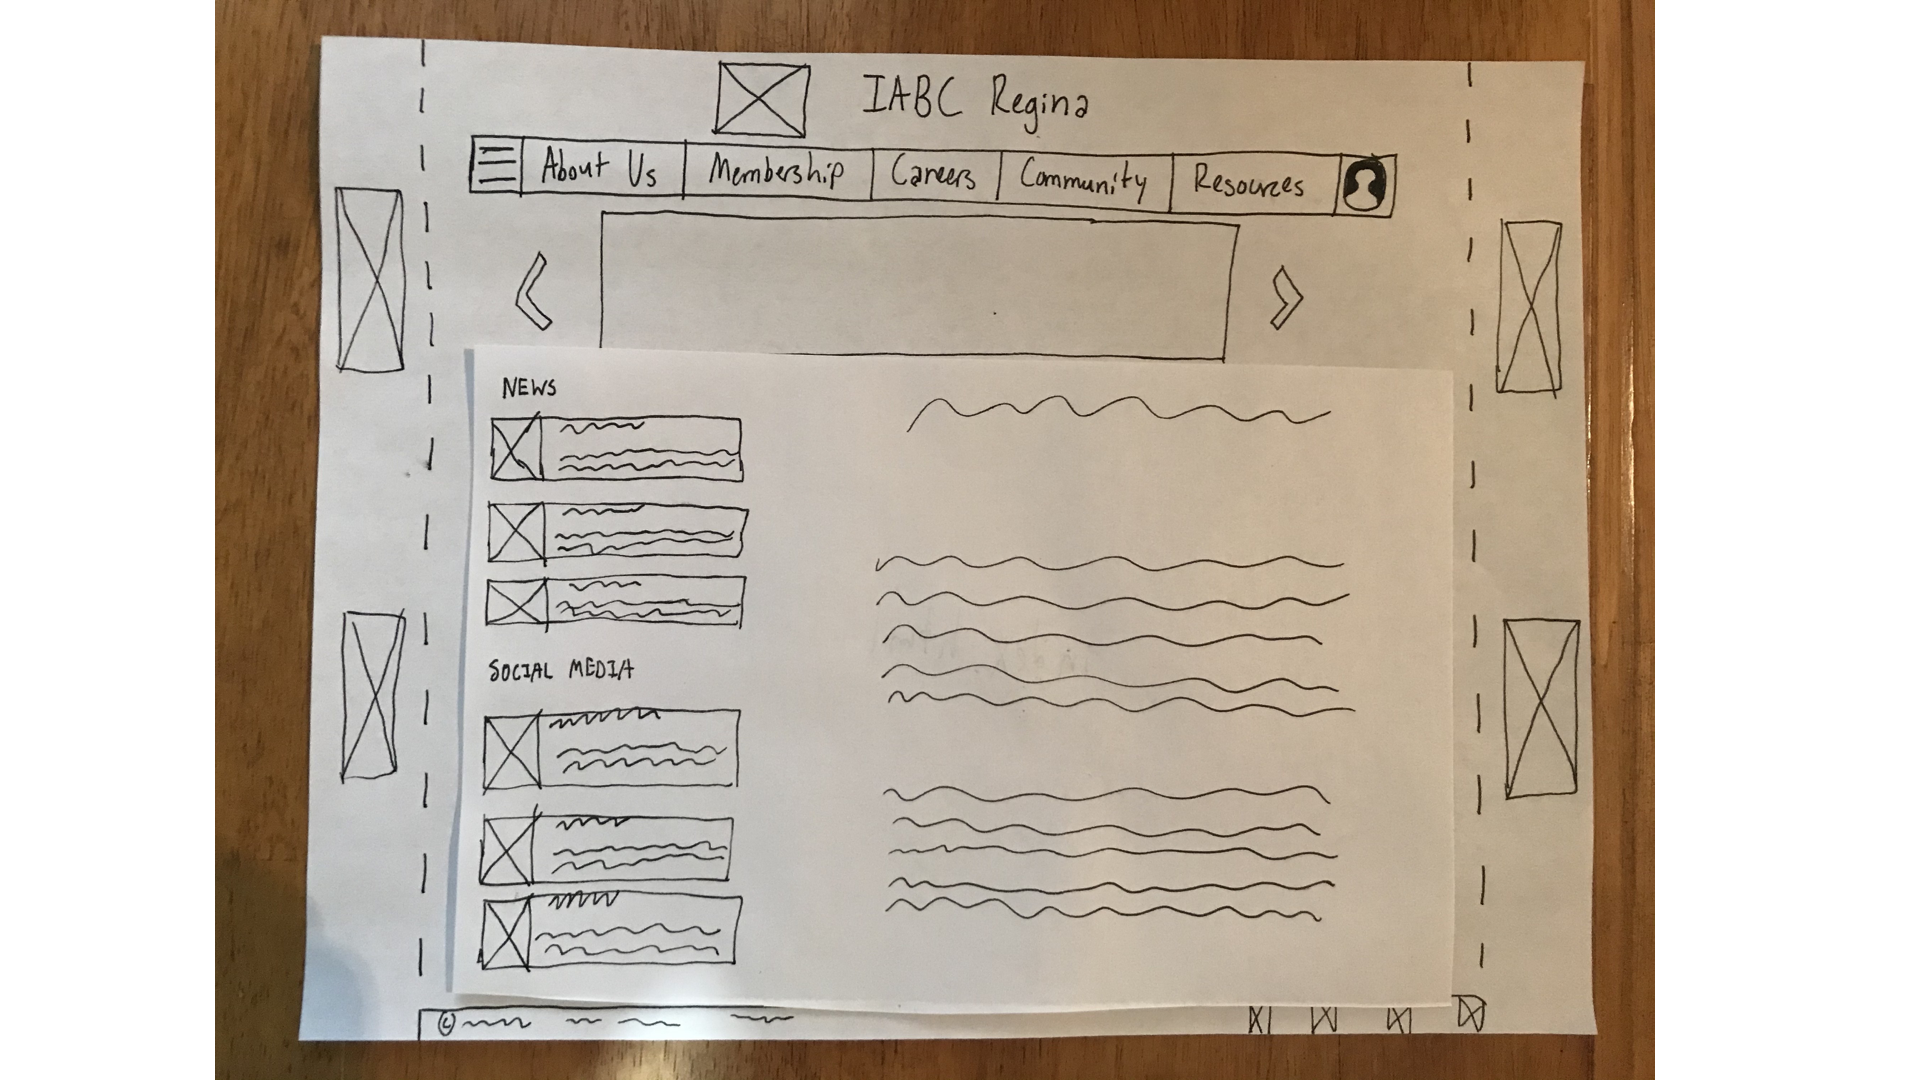 IABC Regina
About Us Membership Careers Community Resources
NEWS
SOCIAL MEDIA
©